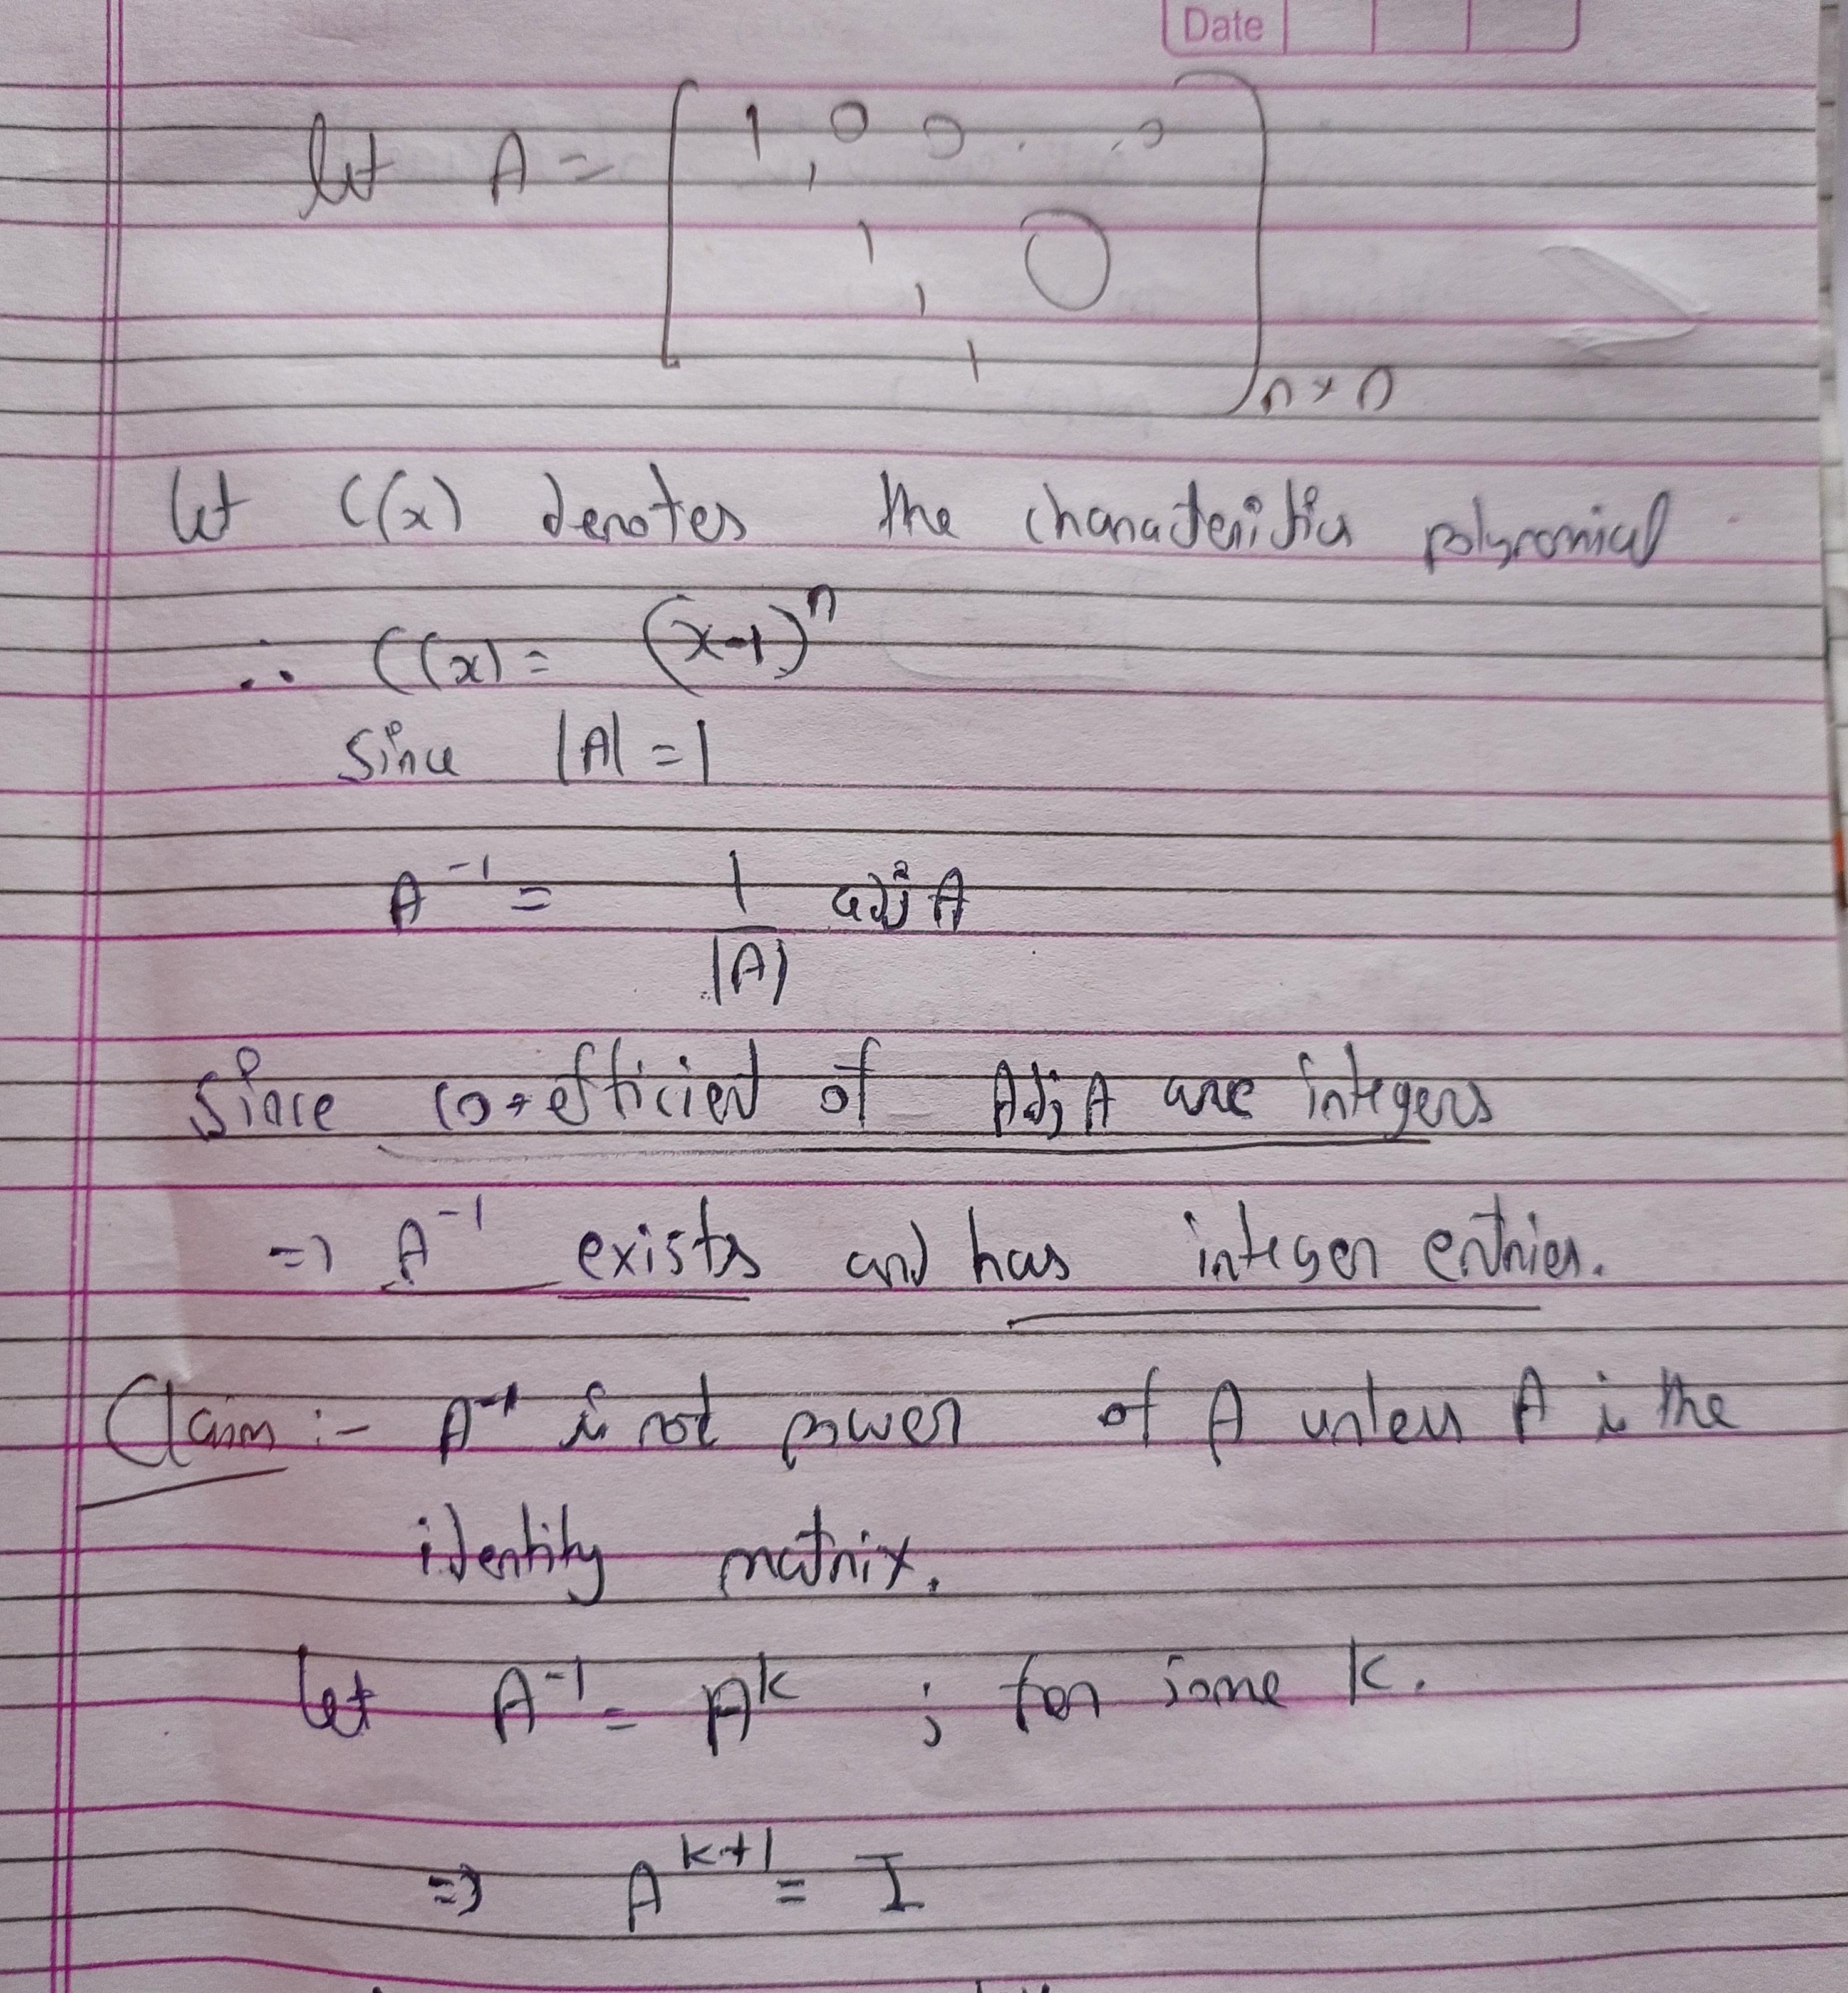 Date
let A = [ 1 0 0 . . . 0
1
1 0
1
1 ] n×n
let C(x) denotes the characteristics polynomial
∴ C(x) = (x-1)^n
Since |A| = 1
A^-1 = 1/|A| adj A
Since co-efficient of Adj A are integers
=> A^-1 exists and has integer entries.
Claim :- A^-1 is not power of A unless A is the
identity matrix.
let A^-1 = A^k ; for some k.
=> A^k+1 = I